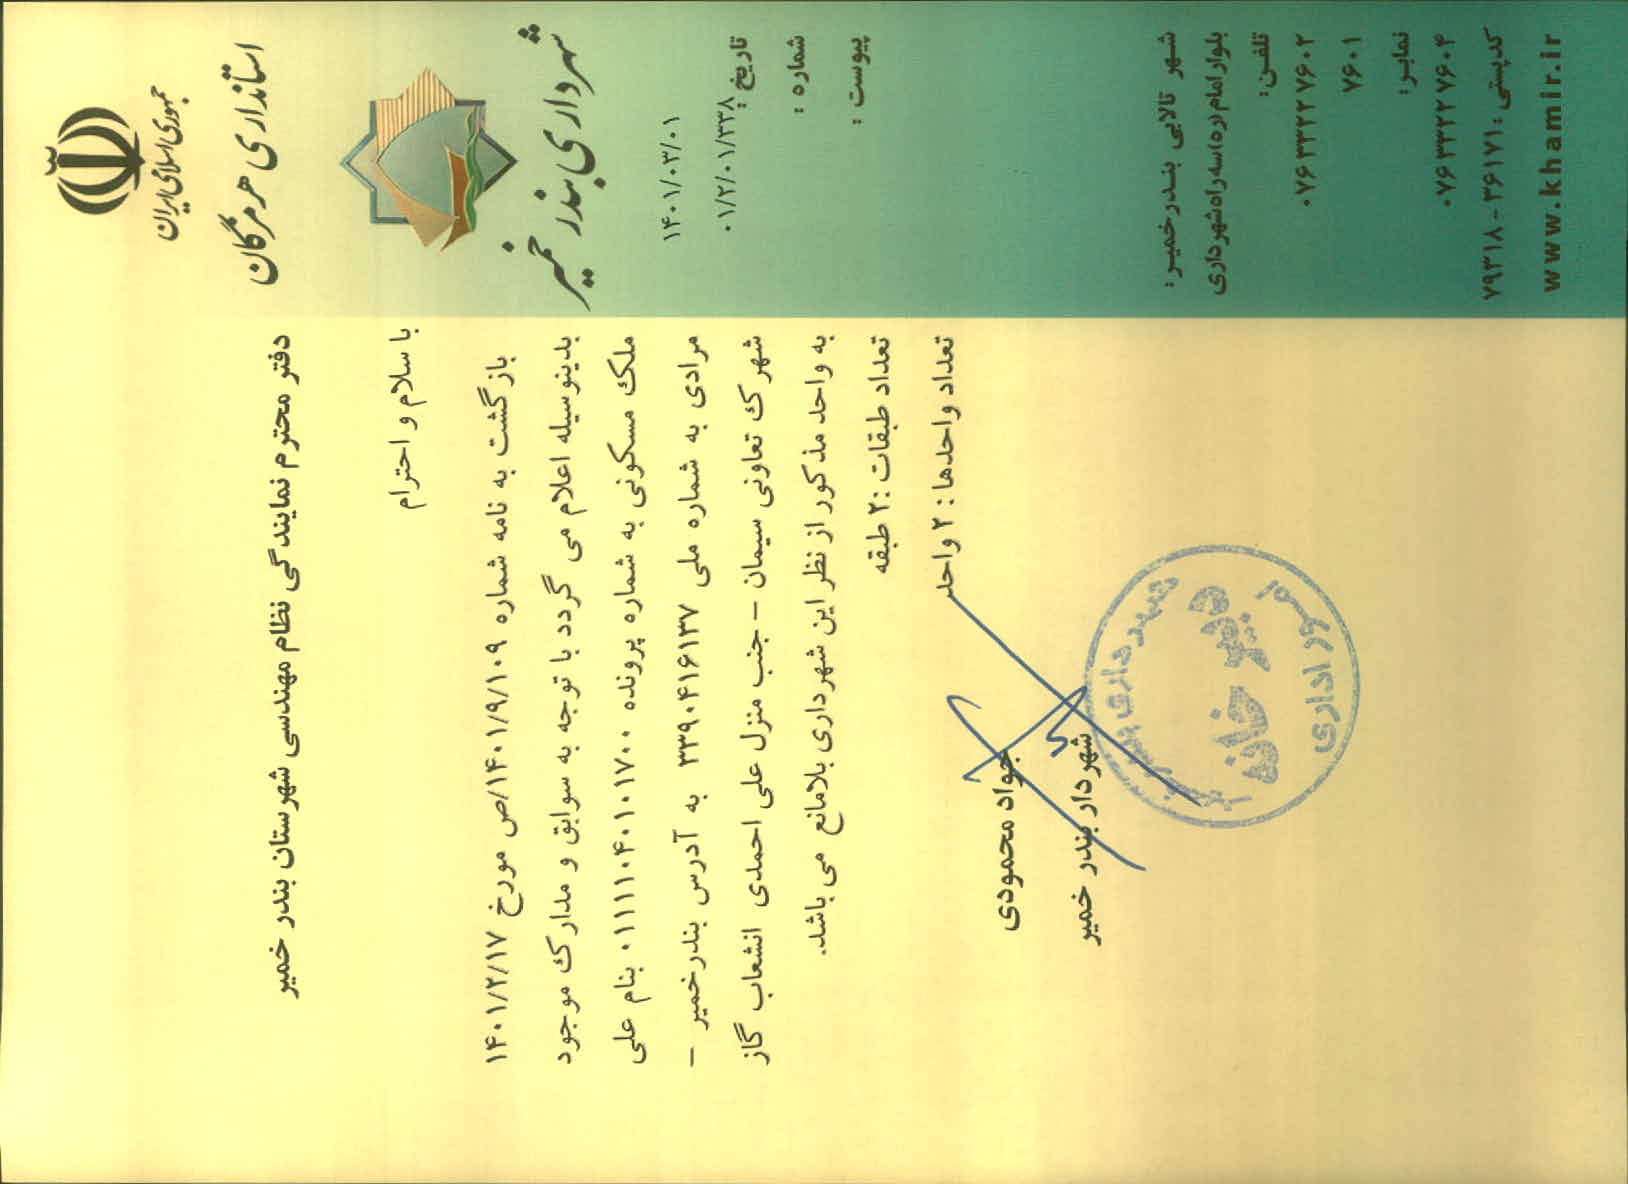 جمهوری اسلامی ایران
استانداری هرمزگان
شهرداری بندر خمیر
۱۴۰۱/۰۳/۰۱
تاریخ :
۰۱/۲/۰۱/۳۳۸
شماره :
پیوست :
دفتر محترم نمایندگی نظام مهندسی شهرستان بندر خمیر
با سلام و احترام
بازگشت به نامه شماره ۱۴۰۱/۹/۱۰۹/ص مورخ ۱۴۰۱/۲/۱۷
بدینوسیله اعلام می گردد با توجه به سوابق و مدارک موجود
ملک مسکونی به شماره پرونده ۰۱۱۱۱۰۴۰۱۰۱۷۰۰ بنام علی
مرادی به شماره ملی ۳۳۹۰۴۱۶۱۳۷ به آدرس بندرخمیر –
شهرک تعاونی سیمان – جنب منزل علی احمدی انشعاب گاز
به واحد مذکور از نظر این شهرداری بلامانع می باشد.
تعداد طبقات :۲ طبقه
تعداد واحدها : ۲ واحد
جواد محمودی
شهردار بندر خمیر
شهرداری بندر خمیر
دبیرخانه
امور اداری
شهر تالابی بندرخمیر:
بلوار امام (ره) سه راه شهرداری
تلفن:
۰۷۶۳۳۲۲۷۶۰۲
۷۶۰۱
نمابر:
۰۷۶۳۳۲۲۷۶۰۴
کدپستی: ۳۶۱۷۱ - ۷۹۳۱۸
www.khamir.ir